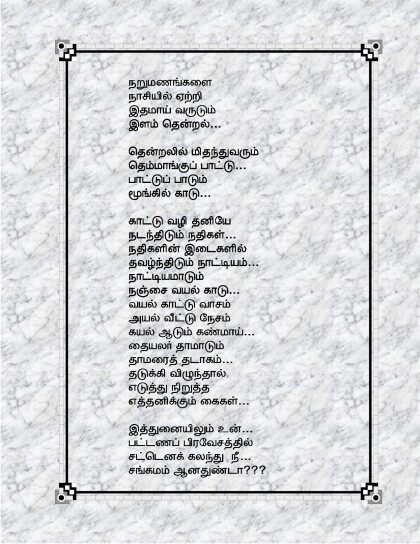 நறுமணங்களை
நாசியில் ஏற்றி
இதமாய் வருடும்
இளம் தென்றல்...
தென்றலில் மிதந்துவரும்
தெம்மாங்குப் பாட்டு...
பாட்டுப் பாடும்
மூங்கில் காடு...
காட்டு வழி தனியே
நடந்திடும் நதிகள்...
நதிகளின் இடைகளில்
தவழ்ந்திடும் நாட்டியம்...
நாட்டியமாடும்
நஞ்சை வயல் காடு...
வயல் காட்டு வாசம்
அயல் வீட்டு நேசம்
கயல் ஆடும் கண்மாய்...
தையலர் தாமாடும்
தாமரைத் தடாகம்...
தடுக்கி விழுந்தால்
எடுத்து நிறுத்த
எத்தனிக்கும் கைகள்...
இத்துனையிலும் உன்...
பட்டணப் பிரவேசத்தில்
சட்டெனக் கலந்து நீ...
சங்கமம் ஆனதுண்டா???